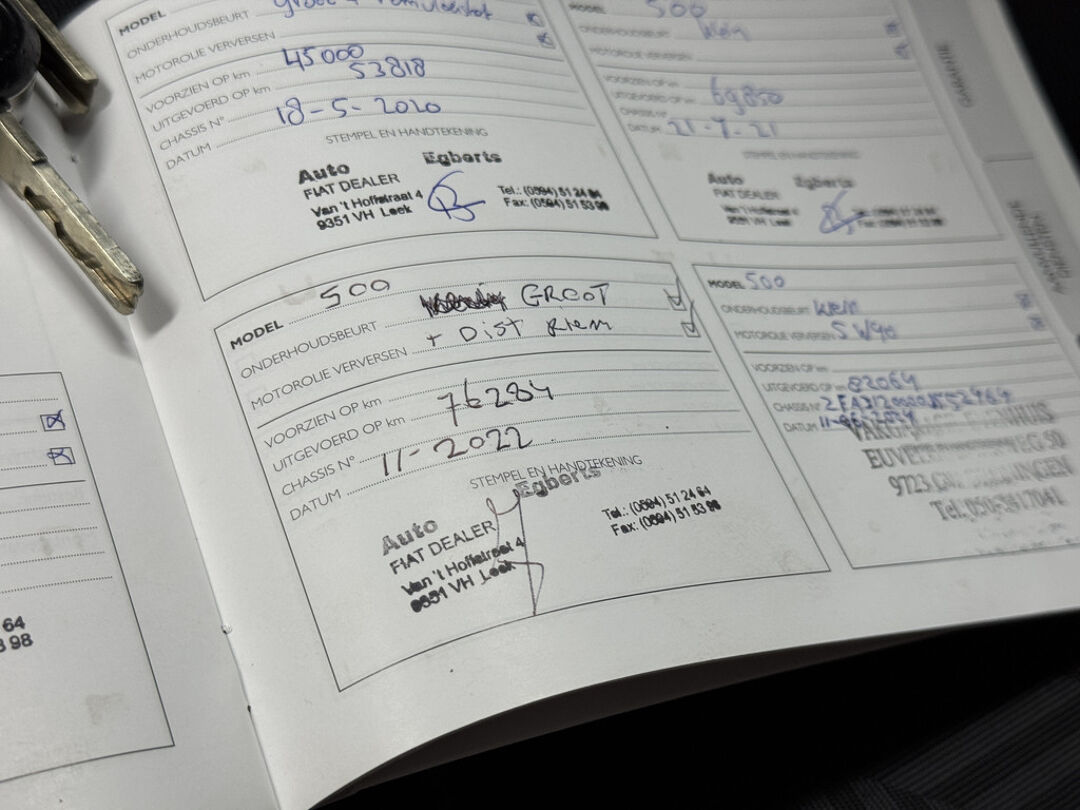 MODEL
ONDERHOUDSBEURT Groot + remvloeistof
MOTOROLIE VERVERSEN
VOORZIEN OP km 45000
UITGEVOERD OP km 53818
CHASSIS N°
DATUM 18-5-2020
STEMPEL EN HANDTEKENING
Auto Egberts
FIAT DEALER
Van 't Hoffstraat 4
9351 VH Leek
Tel.: (0594) 51 24 64
Fax: (0594) 51 53 98
MODEL 500
ONDERHOUDSBEURT klein
MOTOROLIE VERVERSEN
VOORZIEN OP km
UITGEVOERD OP km 69850
CHASSIS N°
DATUM 21-7-21
STEMPEL EN HANDTEKENING
Auto Egberts
FIAT DEALER
Van 't Hoffstraat 4
9351 VH Leek
GARANTIE
MODEL 500
ONDERHOUDSBEURT GROOT
MOTOROLIE VERVERSEN + Dist Riem
VOORZIEN OP km
UITGEVOERD OP km 76284
CHASSIS N°
DATUM 11-2022
STEMPEL EN HANDTEKENING
Auto Egberts
FIAT DEALER
Van 't Hoffstraat 4
9351 VH Leek
Tel.: (0594) 51 24 64
Fax: (0594) 51 53 98
MODEL 500
ONDERHOUDSBEURT klein
MOTOROLIE VERVERSEN 5W40
VOORZIEN OP km
UITGEVOERD OP km 82064
CHASSIS N°
DATUM
9723
Tel. 050-5417041
64
98